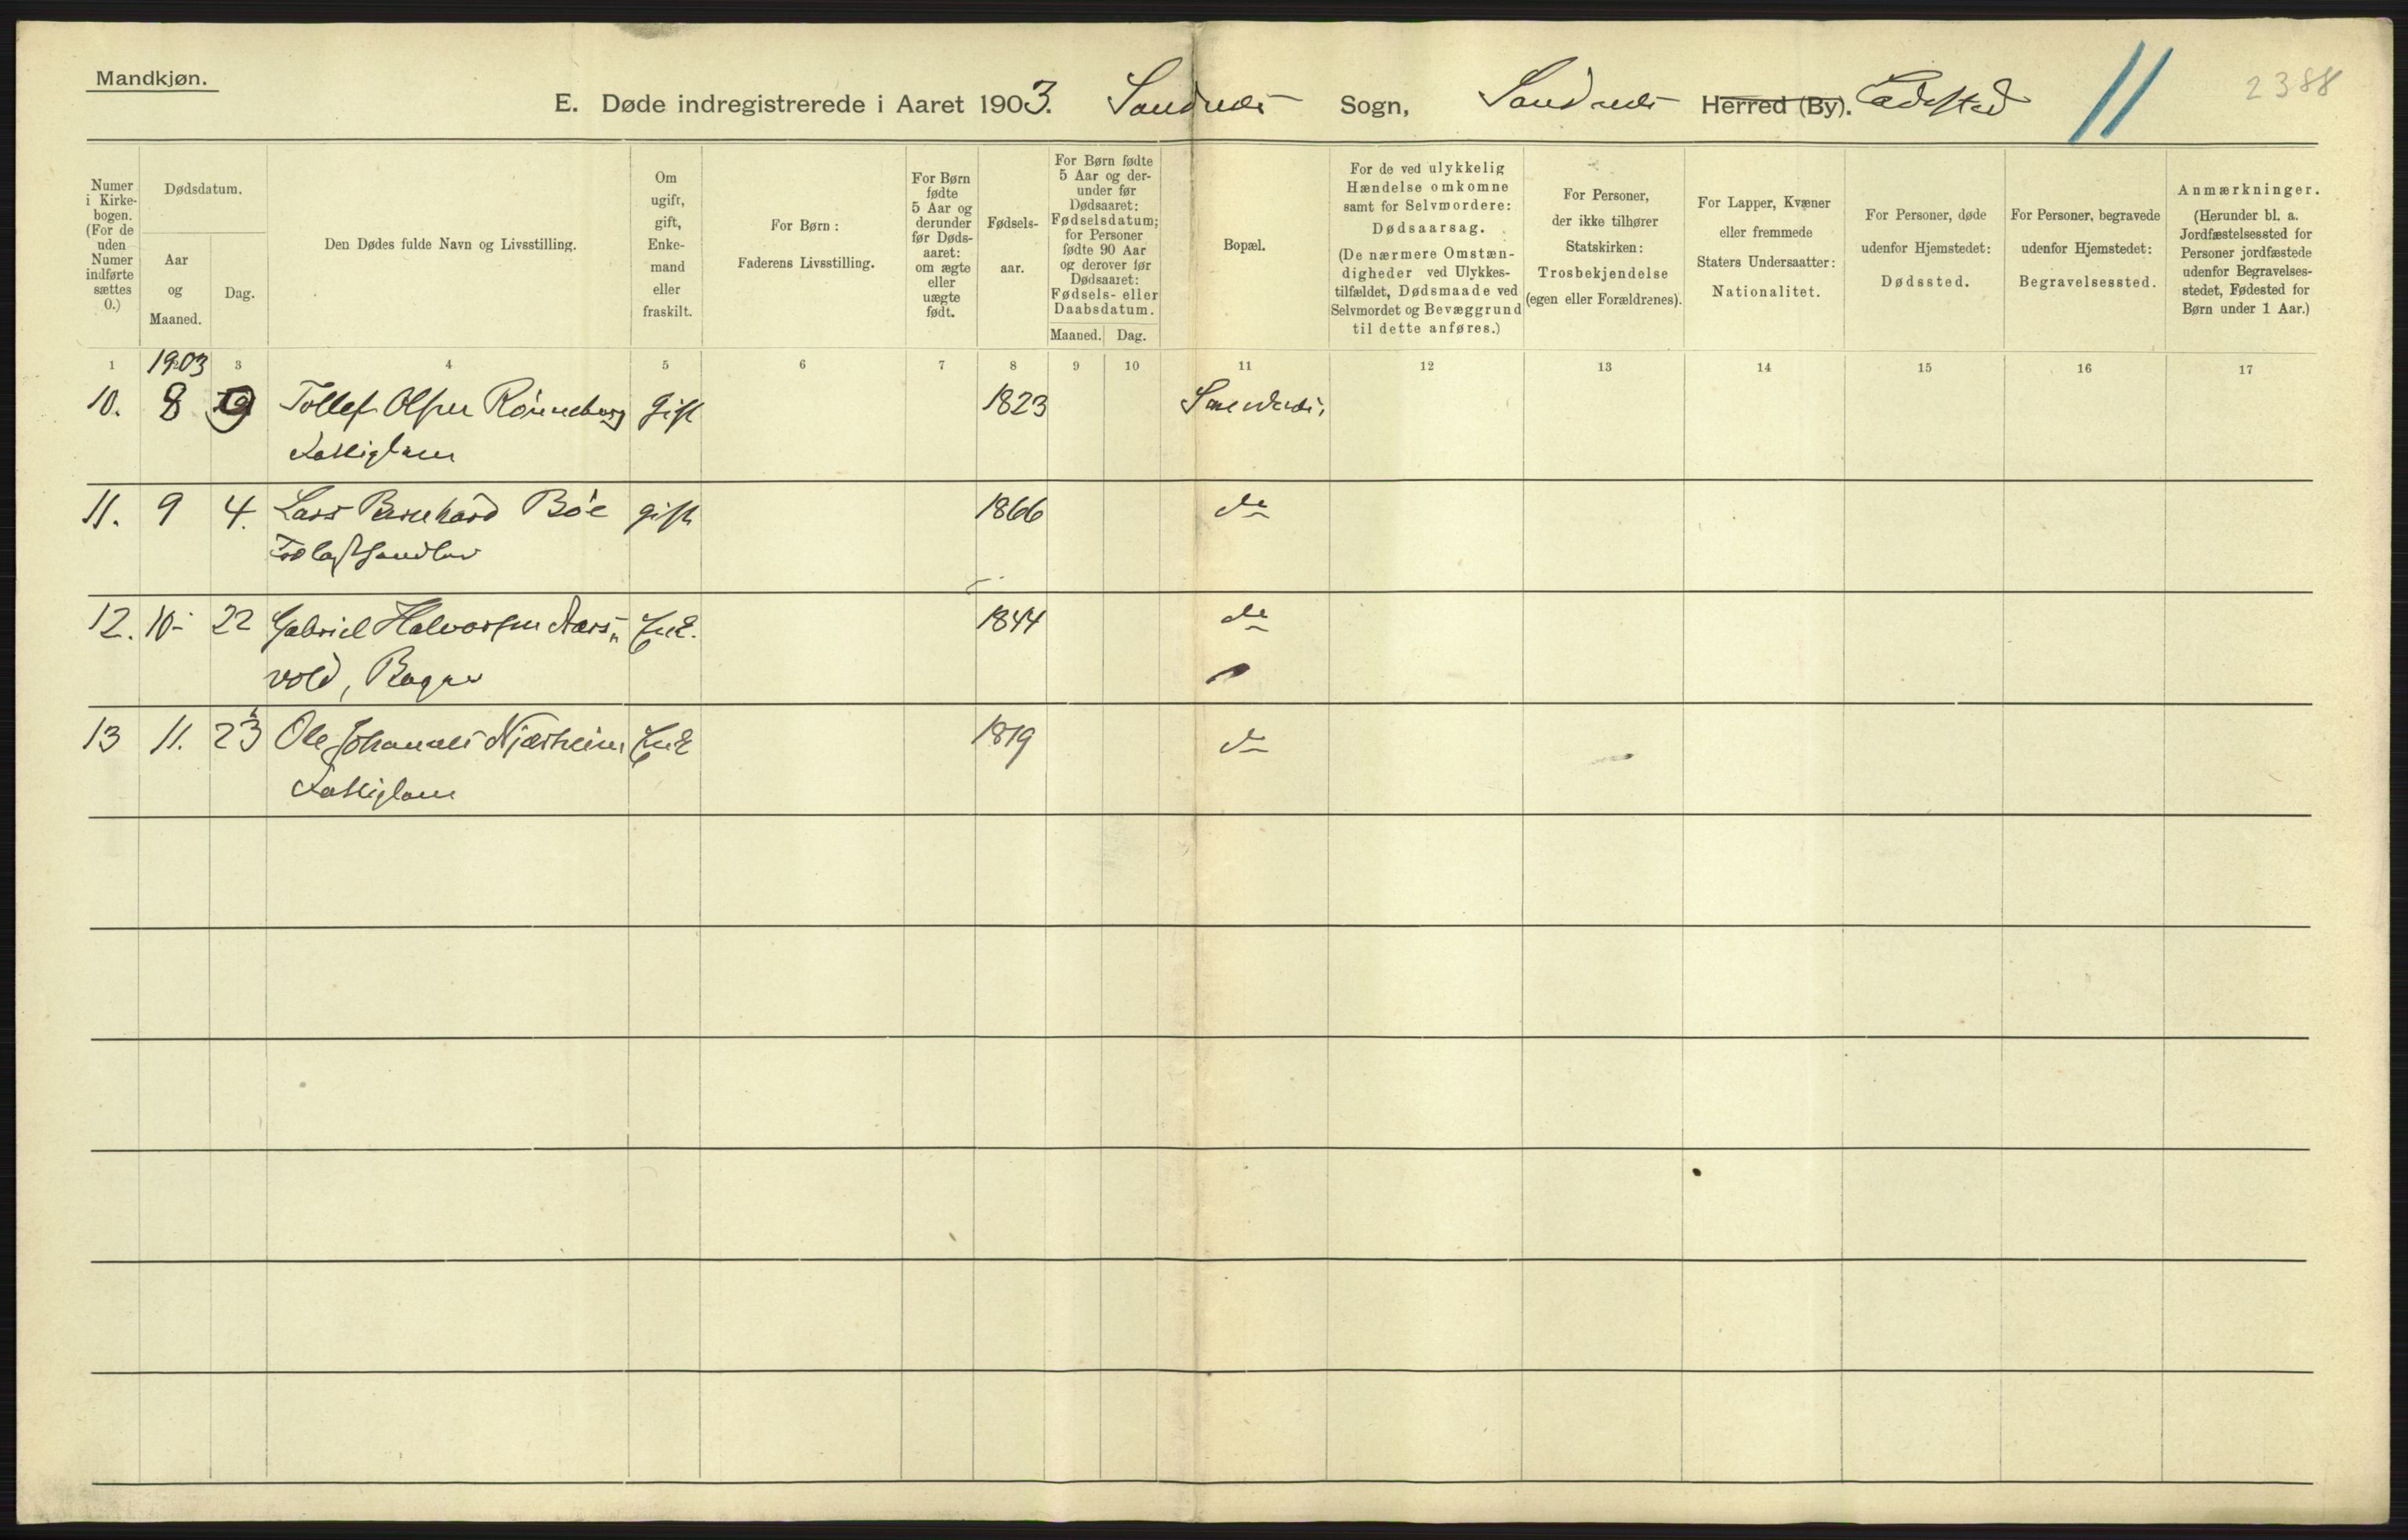 Mandkjøn.
E. Døde indregistrerede i Aaret 1903. Sandnes Sogn, Sandnes Herred (By). Ladested
11
2388
Numer i Kirkebogen. (For de uden Numer indførte sættes 0.)
Dødsdatum.
Aar og Maaned.
Dag.
Den Dødes fulde Navn og Livsstilling.
Om ugift, gift, Enkemand eller fraskilt.
For Børn: Faderens Livsstilling.
For Børn fødte 5 Aar og derunder før Dødsaaret: om ægte eller uægte født.
Fødselsaar.
For Børn fødte 5 Aar og derunder før Dødsaaret: Fødselsdatum; for Personer fødte 90 Aar og derover før Dødsaaret: Fødsels- eller Daabsdatum.
Maaned. Dag.
Bopæl.
For de ved ulykkelig Hændelse omkomne samt for Selvmordere: Dødsaarsag. (De nærmere Omstændigheder ved Ulykkestilfældet, Dødsmaade ved Selvmordet og Bevæggrund til dette anføres.)
For Personer, der ikke tilhører Statskirken: Trosbekjendelse (egen eller Forældrenes).
For Lapper, Kvæner eller fremmede Staters Undersaatter: Nationalitet.
For Personer, døde udenfor Hjemstedet: Dødssted.
For Personer, begravede udenfor Hjemstedet: Begravelsessted.
Anmærkninger. (Herunder bl. a. Jordfæstelsessted for Personer jordfæstede udenfor Begravelsesstedet, Fødested for Børn under 1 Aar.)
1 1903 3 4 5 6 7 8 9 10 11 12 13 14 15 16 17
10. 8 Tollef Olsen Rönneberg gift 1823 Sandnes,
Fattiglem
11. 9 4. Lars Bernhard Böe gift 1866 do
12. 10- 22 Gabriel Halvorsen Aars- Enk. 1844 do
vold, Bager
13 11. 23 Ole Johannes Njærheim Enk 1819 do
Fattiglem